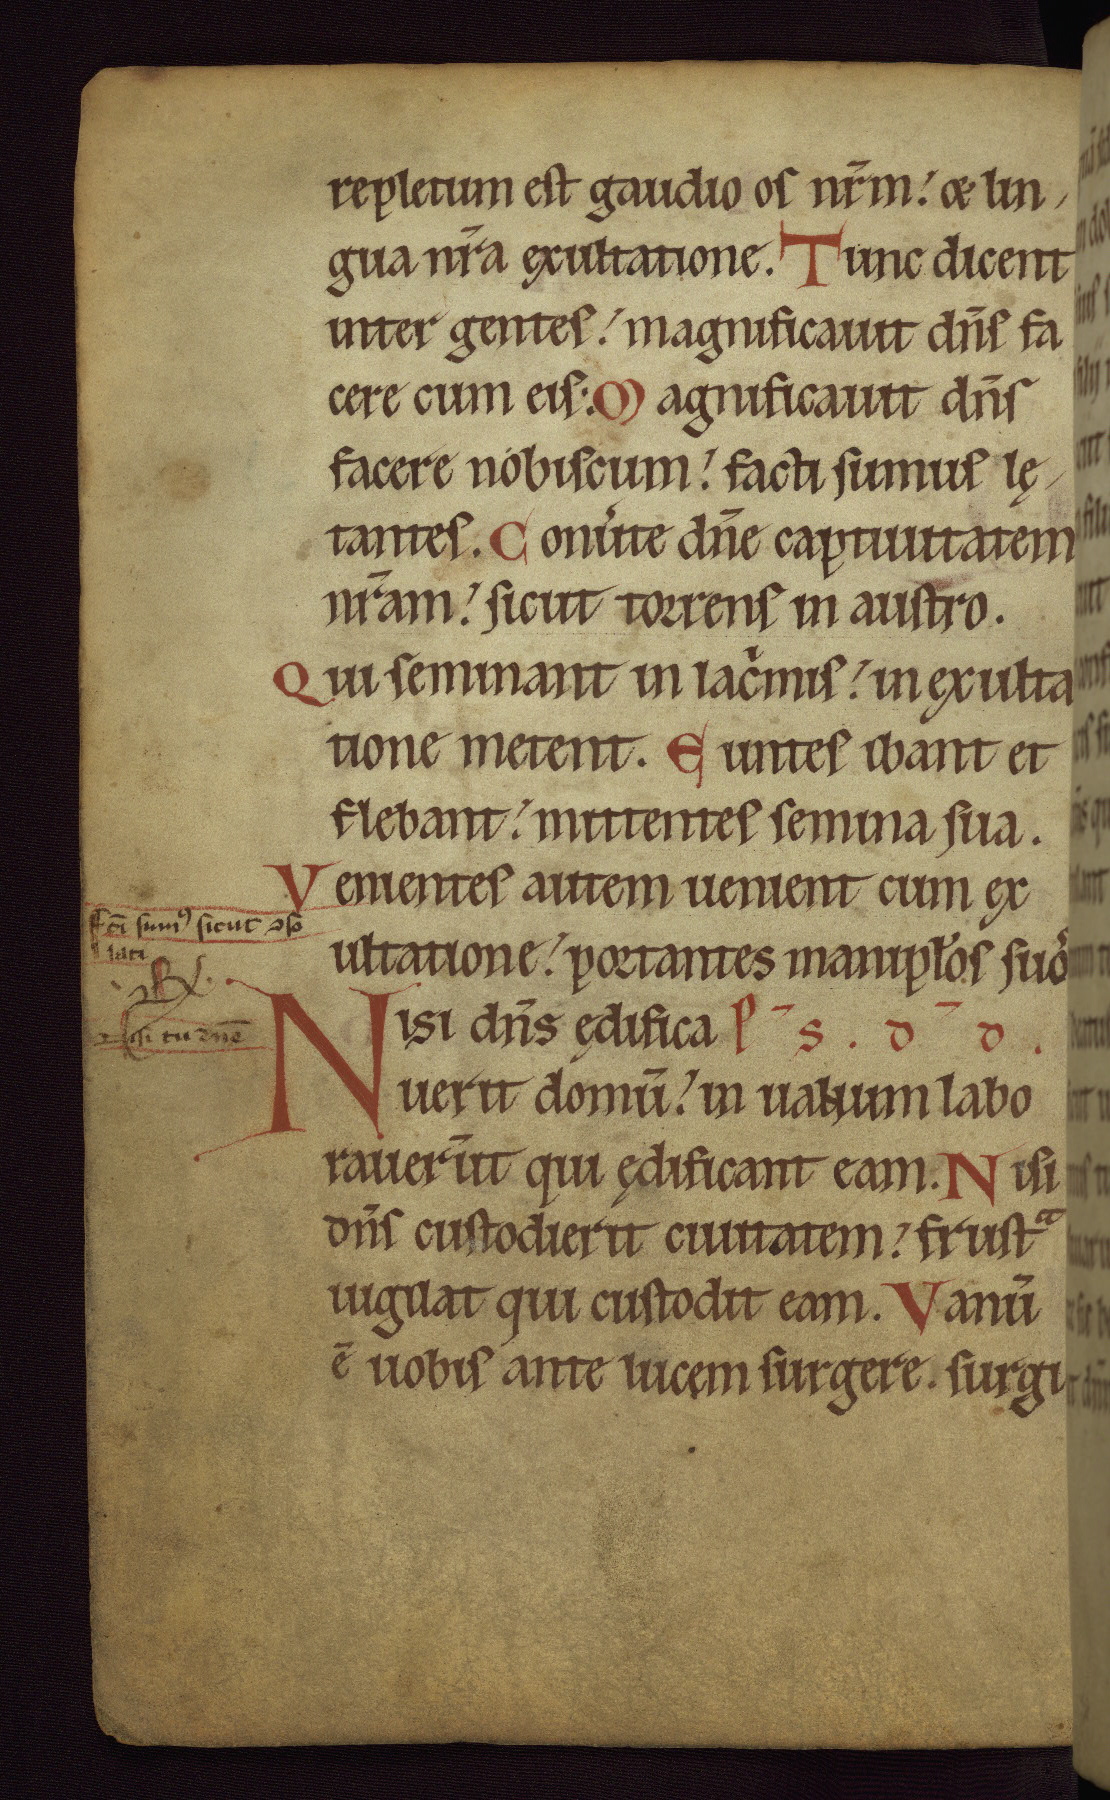 repletum est gaudio os nr̄m! & lin
gua nr̄a exultatione. Tunc dicent
inter gentes! magnificauit dn̄s fa
cere cum eis: Magnificauit dn̄s
facere nobiscum! facti sumus lę
tantes. Conu̓te dn̄e captiuitatem
nr̄am! sicut torrens in austro.
Qui seminant in lac̓mis! in exulta
tione metent. Euntes ibant et
flebant! mittentes semina sua.
Venientes autem uenient cum ex
fc̄i sumꝰ sicut ↄso
lati
ultatione! portantes manipl̓os suoˢ
Nisi dn̄s ędifica P̄ S. D̄ D.
nisi tu dn̄e
uerit domū! in uanum labo
rauer̄ut qui ędificant eam. Nisi
dn̄s custodierit ciuitatem! frustᵃ
uigilat qui custodit eam. Vanū
ē uobis ante lucem surgere. surgi